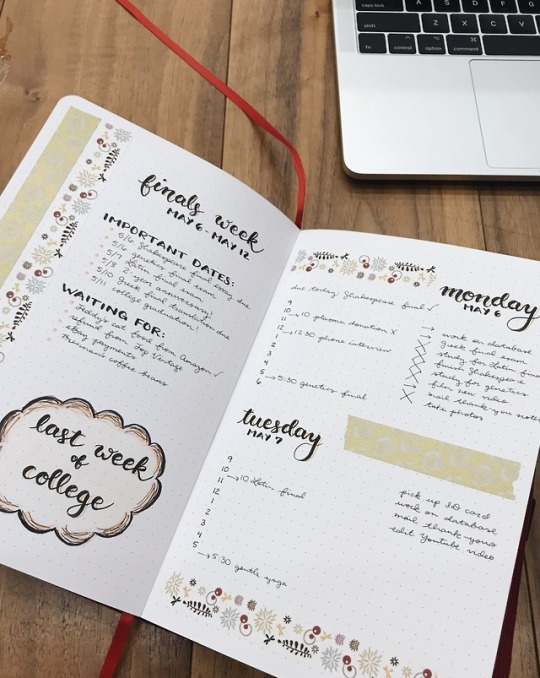 finals week
MAY 6 - MAY 12
IMPORTANT DATES:
5/6 Shakespeare final essay due
5/6 genetics final exam
5/7 Latin final exam
5/8 2 year anniversary!
5/10 Greek final translation due
5/11 college graduation!
WAITING FOR:
Teddy's cat food from Amazon ✓
refund from Top Vintage
eBay payments
Trianon coffee beans
last week
of
college
monday
MAY 6
due today: Shakespeare final ✓
9
10
11 → 10 plasma donation x
12 → 12:30 phone interview
1
2
3
4
5
6 → 5:30 genetics final
→ work on database
Greek final exam
study for Latin final
finish Shakespeare
study for genetics
film new video
mail thank-you notes
take photos
tuesday
MAY 7
9
10
11 → 10 Latin final
12
1
2
3
4
5
→ 5:30 gentle yoga
pick up ID card
work on database
mail thank-yous
edit Youtube video
caps lock
A
S
D
F
G
H
shift
Z
X
C
V
B
N
fn
control
option
command